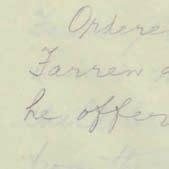 Ordere
Farren a
he offer